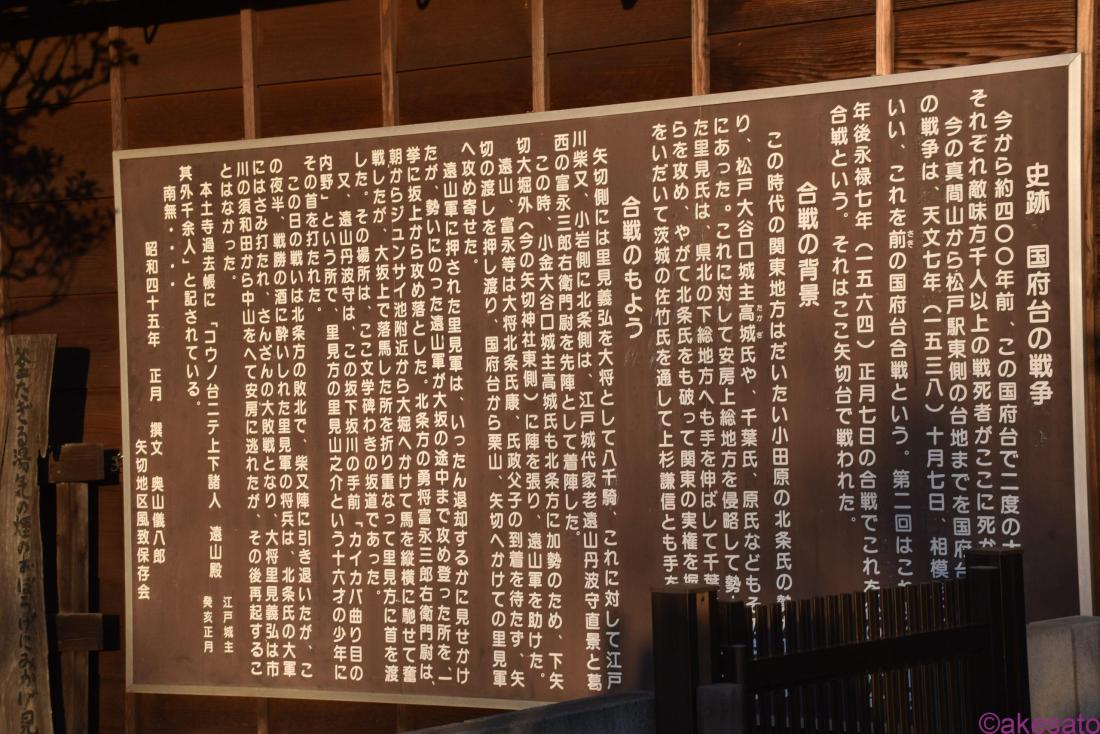 史跡 国府台の戦争
今から約四〇〇年前、この国府台で二度の
それぞれ敵味方千人以上の戦死者がここに死
今の真間山から松戸駅東側の台地までを国府台
の戦争は、天文七年（一五三八）十月七日、相模
いい、これを前の国府台合戦という。第二回はこ
さき
年後永禄七年（一五六四）正月七日の合戦でこれを
合戦という。それはここ矢切台で戦われた。
合戦の背景
この時代の関東地方はだいたい小田原の北条氏の勢
り、松戸大谷口城主高城氏や、千葉氏、原氏などもそ
たかぎ
にあった。これに対して安房上総地方を侵略して勢
た里見氏は、県北の下総地方へも手を伸ばして千葉
らを攻め、やがて北条氏をも破って関東の実権を握
をいだいて茨城の佐竹氏を通して上杉謙信とも手を
合戦のもよう
矢切側には里見義弘を大将として八千騎、これに対して江戸
川柴又、小岩側に北条側は、江戸城代家老遠山丹波守直景と葛
西の富永三郎右衛門尉を先陣として着陣した。
この時、小金大谷口城主高城氏も北条方に加勢のため、下矢
切大堀外（今の矢切神社東側）に陣を張り、遠山軍を助けた。
遠山、富永等は大将北条氏康、氏政父子の到着を待たず、矢
切の渡しを押し渡り、国府台から栗山、矢切へかけての里見軍
へ攻め寄せた。
遠山軍に押された里見軍は、いったん退却するかに見せかけ
たが、勢いにのった遠山軍が大坂の途中まで攻め登った所を、一
挙に坂上から攻め落とした。北条方の勇将富永三郎右衛門尉は、
朝からジュンサイ池附近から大堀へかけて馬を縦横に馳せて奮
戦したが、大坂上で落馬した所を折り重なって里見方に首を渡
した。その場所は、ここ文学碑わきの坂道であった。
又、遠山丹波守は、この坂下坂川の手前「カイカバ曲り目の
内野」という所で、里見方の里見山之介という十六才の少年に
その首を打たれた。
この日の戦いは北条方の敗北で、柴又陣に引き退いたが、こ
の夜半、戦勝の酒に酔いしれた里見軍の将兵は、北条氏の大軍
にはさみ打たれ、さんざんの大敗戦となり、大将里見義弘は市
川の須和田から中山をへて安房に逃れたが、その後再起するこ
とはなかった。
本土寺過去帳に「コウノ台ニテ上下諸人 遠山殿 江戸城主
其外千余人」と記されている。 癸亥正月
南無・・・・
昭和四十五年 正月 撰文 奥山儀八郎
矢切地区風致保存会
釜たぎる湯気の煙のおぼろげに
©akesato